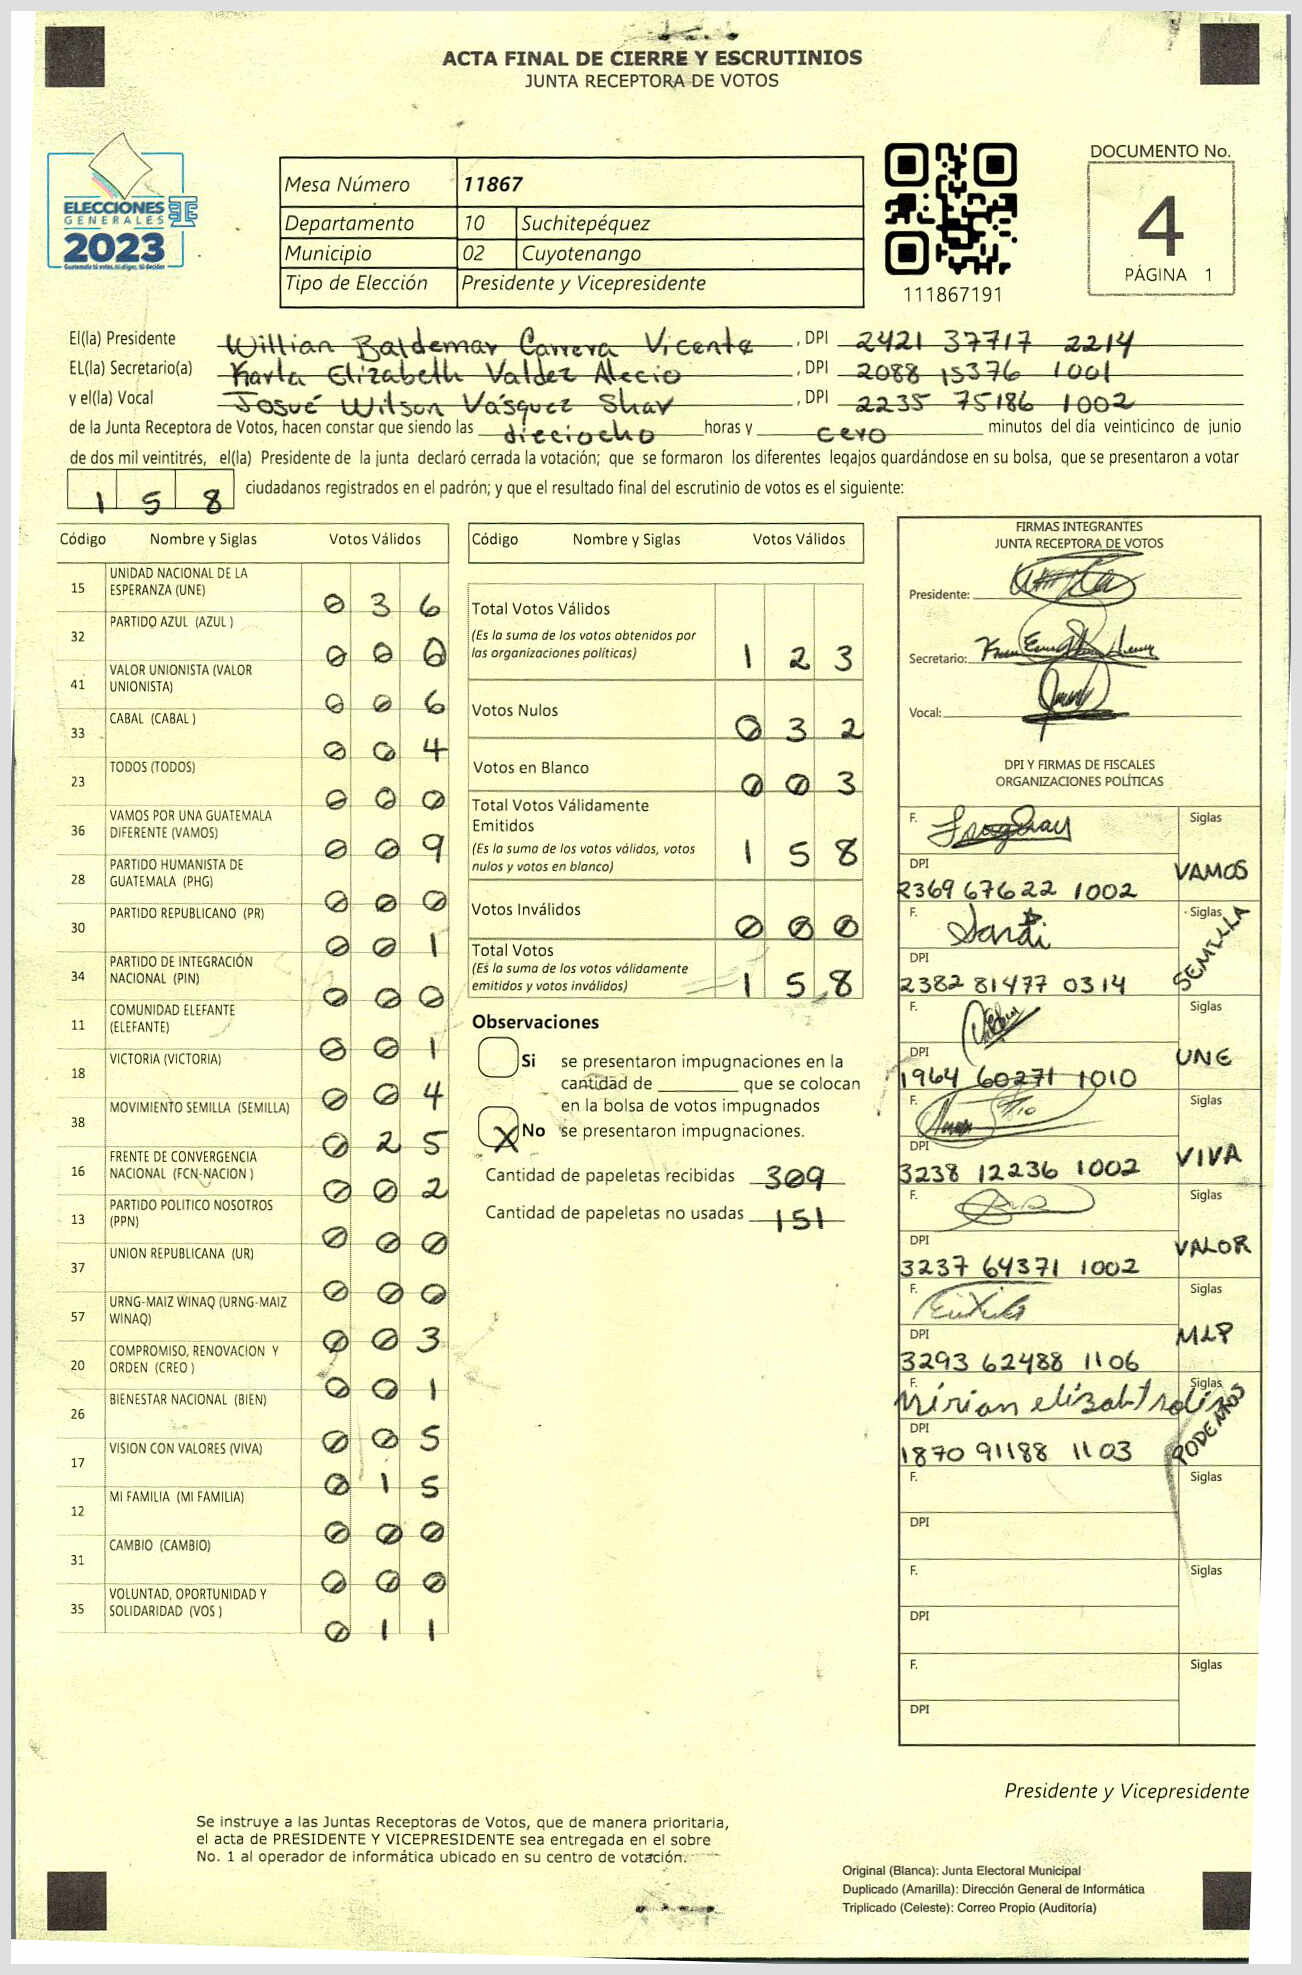 ACTA FINAL DE CIERRE Y ESCRUTINIOS
JUNTA RECEPTORA DE VOTOS
ELECCIONES
GENERALES
2023
Mesa Número 11867
Departamento 10 Suchitepéquez
Municipio 02 Cuyotenango
Tipo de Elección Presidente y Vicepresidente
111867191
DOCUMENTO No.
4
PÁGINA 1
El(la) Presidente Willian Baldemar Carrera Vicente , DPI 2421 37717 2214
EL(la) Secretario(a) Karla Elizabeth Valdez Alecio , DPI 2088 15376 1001
y el(la) Vocal Josué Wilson Vásquez Shav , DPI 2235 75186 1002
de la Junta Receptora de Votos, hacen constar que siendo las dieciocho horas y cero minutos del día veinticinco de junio
de dos mil veintitrés, el(la) Presidente de la junta declaró cerrada la votación; que se formaron los diferentes legajos guardándose en su bolsa, que se presentaron a votar
1 5 8 ciudadanos registrados en el padrón; y que el resultado final del escrutinio de votos es el siguiente:
Código Nombre y Siglas Votos Válidos
15 UNIDAD NACIONAL DE LA ESPERANZA (UNE) 0 3 6
32 PARTIDO AZUL (AZUL ) 0 0 0
41 VALOR UNIONISTA (VALOR UNIONISTA) 0 0 6
33 CABAL (CABAL ) 0 0 4
23 TODOS (TODOS) 0 0 0
36 VAMOS POR UNA GUATEMALA DIFERENTE (VAMOS) 0 0 9
28 PARTIDO HUMANISTA DE GUATEMALA (PHG) 0 0 0
30 PARTIDO REPUBLICANO (PR) 0 0 1
34 PARTIDO DE INTEGRACIÓN NACIONAL (PIN) 0 0 0
11 COMUNIDAD ELEFANTE (ELEFANTE) 0 0 1
18 VICTORIA (VICTORIA) 0 0 4
38 MOVIMIENTO SEMILLA (SEMILLA) 0 2 5
16 FRENTE DE CONVERGENCIA NACIONAL (FCN-NACION ) 0 0 2
13 PARTIDO POLITICO NOSOTROS (PPN) 0 0 0
37 UNION REPUBLICANA (UR) 0 0 0
57 URNG-MAIZ WINAQ (URNG-MAIZ WINAQ) 0 0 3
20 COMPROMISO, RENOVACION Y ORDEN (CREO ) 0 0 1
26 BIENESTAR NACIONAL (BIEN) 0 0 5
17 VISION CON VALORES (VIVA) 0 1 5
12 MI FAMILIA (MI FAMILIA) 0 0 0
31 CAMBIO (CAMBIO) 0 0 0
35 VOLUNTAD, OPORTUNIDAD Y SOLIDARIDAD (VOS ) 0 1 1
Código Nombre y Siglas Votos Válidos
Total Votos Válidos
(Es la suma de los votos obtenidos por
las organizaciones políticas) 1 2 3
Votos Nulos 0 3 2
Votos en Blanco 0 0 3
Total Votos Válidamente
Emitidos
(Es la suma de los votos válidos, votos
nulos y votos en blanco) 1 5 8
Votos Inválidos 0 0 0
Total Votos
(Es la suma de los votos válidamente
emitidos y votos inválidos) 1 5 8
Observaciones
Si se presentaron impugnaciones en la
cantidad de ________ que se colocan
en la bolsa de votos impugnados
X No se presentaron impugnaciones.
Cantidad de papeletas recibidas 309
Cantidad de papeletas no usadas 151
FIRMAS INTEGRANTES
JUNTA RECEPTORA DE VOTOS
Presidente:
Secretario:
Vocal:
DPI Y FIRMAS DE FISCALES
ORGANIZACIONES POLÍTICAS
F. Siglas
DPI VAMOS
2369 67622 1002
F. Sandi Siglas
DPI SEMILLA
2382 81477 0314
F. Siglas
DPI UNE
1964 60271 1010
F. Siglas
DPI VIVA
3238 12236 1002
F. Siglas
DPI VALOR
3237 64371 1002
F. Siglas
DPI MLP
3293 62488 1106
F. Siglas
Mirian
DPI PODEMOS
1870 91188 1103
F. Siglas
DPI
F. Siglas
DPI
F. Siglas
DPI
Presidente y Vicepresidente
Se instruye a las Juntas Receptoras de Votos, que de manera prioritaria,
el acta de PRESIDENTE Y VICEPRESIDENTE sea entregada en el sobre
No. 1 al operador de informática ubicado en su centro de votación.
Original (Blanca): Junta Electoral Municipal
Duplicado (Amarilla): Dirección General de Informática
Triplicado (Celeste): Correo Propio (Auditoría)